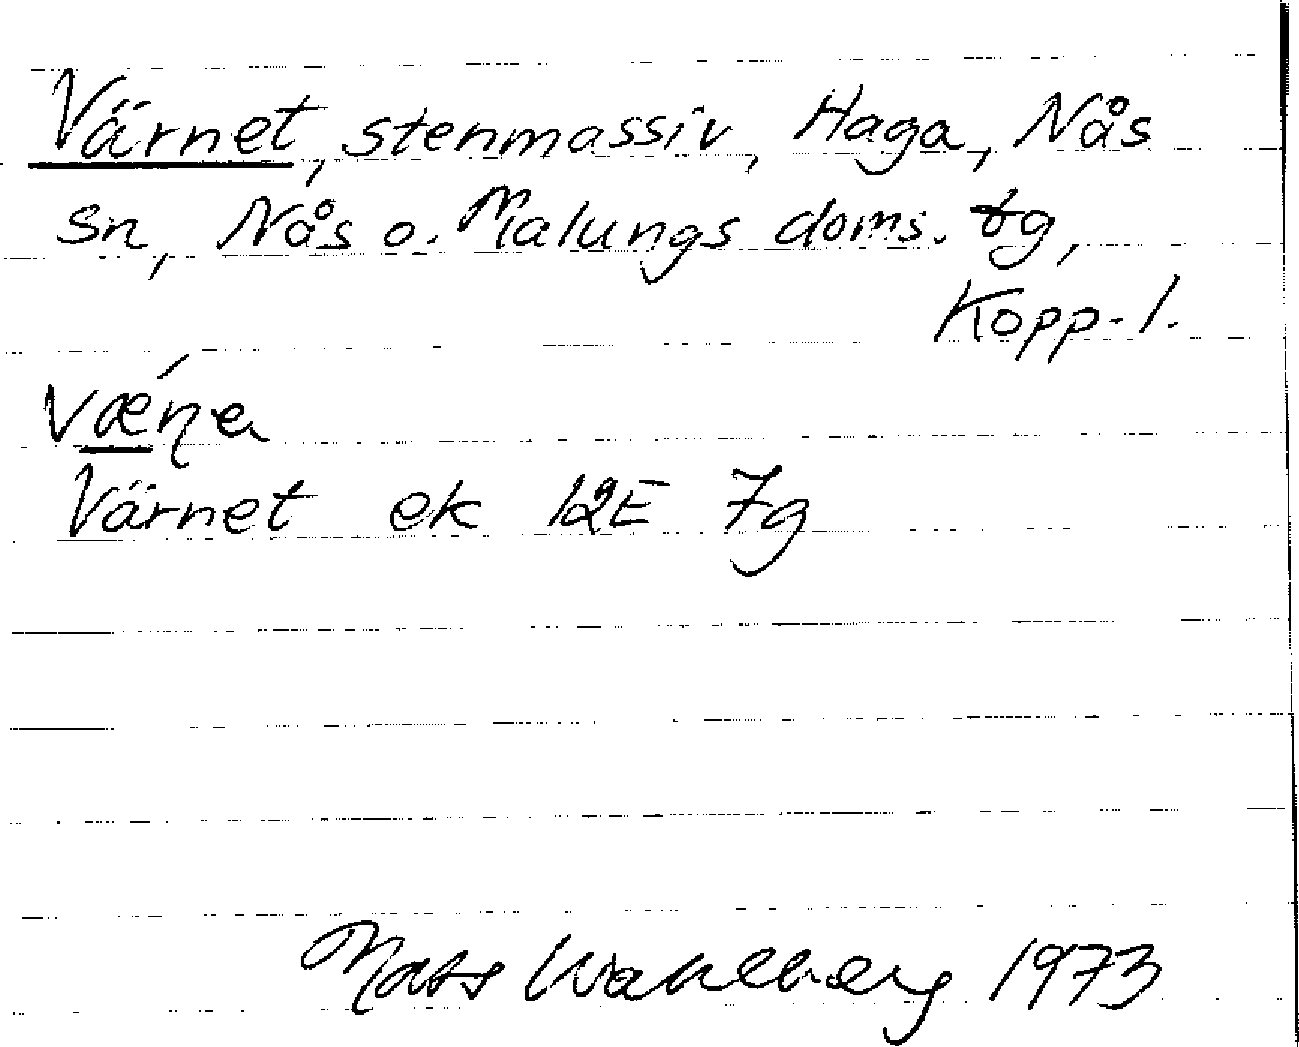 Värnet, stenmassiv, Haga, Nås
sn, Nås o. Malungs doms. tg,
Kopp. l.
Värnet ek 12E 7g
Mats Wahlberg 1973